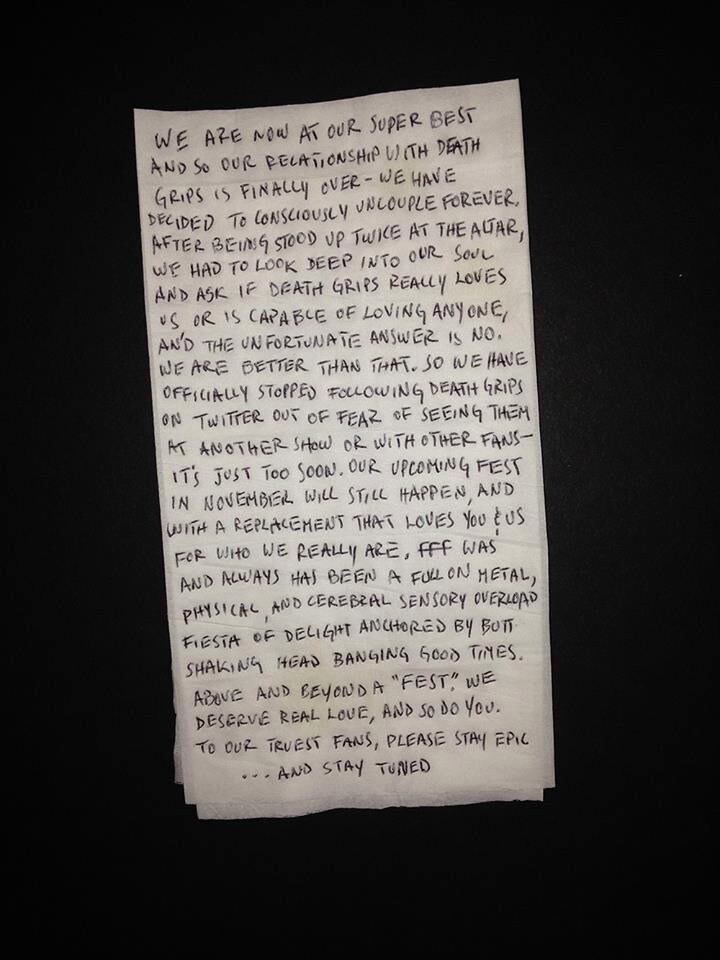 WE ARE NOW AT OUR SUPER BEST
AND SO OUR RELATIONSHIP WITH DEATH
GRIPS IS FINALLY OVER - WE HAVE
DECIDED TO CONSCIOUSLY UNCOUPLE FOREVER.
AFTER BEING STOOD UP TWICE AT THE ALTAR,
WE HAD TO LOOK DEEP INTO OUR SOUL
AND ASK IF DEATH GRIPS REALLY LOVES
US OR IS CAPABLE OF LOVING ANYONE,
AND THE UNFORTUNATE ANSWER IS NO.
WE ARE BETTER THAN THAT. SO WE HAVE
OFFICIALLY STOPPED FOLLOWING DEATH GRIPS
ON TWITTER OUT OF FEAR OF SEEING THEM
AT ANOTHER SHOW OR WITH OTHER FANS—
IT'S JUST TOO SOON. OUR UPCOMING FEST
IN NOVEMBER WILL STILL HAPPEN, AND
WITH A REPLACEMENT THAT LOVES YOU & US
FOR WHO WE REALLY ARE. FFF WAS
AND ALWAYS HAS BEEN A FULL ON METAL,
PHYSICAL, AND CEREBRAL SENSORY OVERLOAD
FIESTA OF DELIGHT ANCHORED BY BUTT
SHAKING HEAD BANGING GOOD TIMES.
ABOVE AND BEYOND A "FEST." WE
DESERVE REAL LOVE, AND SO DO YOU.
TO OUR TRUEST FANS, PLEASE STAY EPIC
... AND STAY TUNED